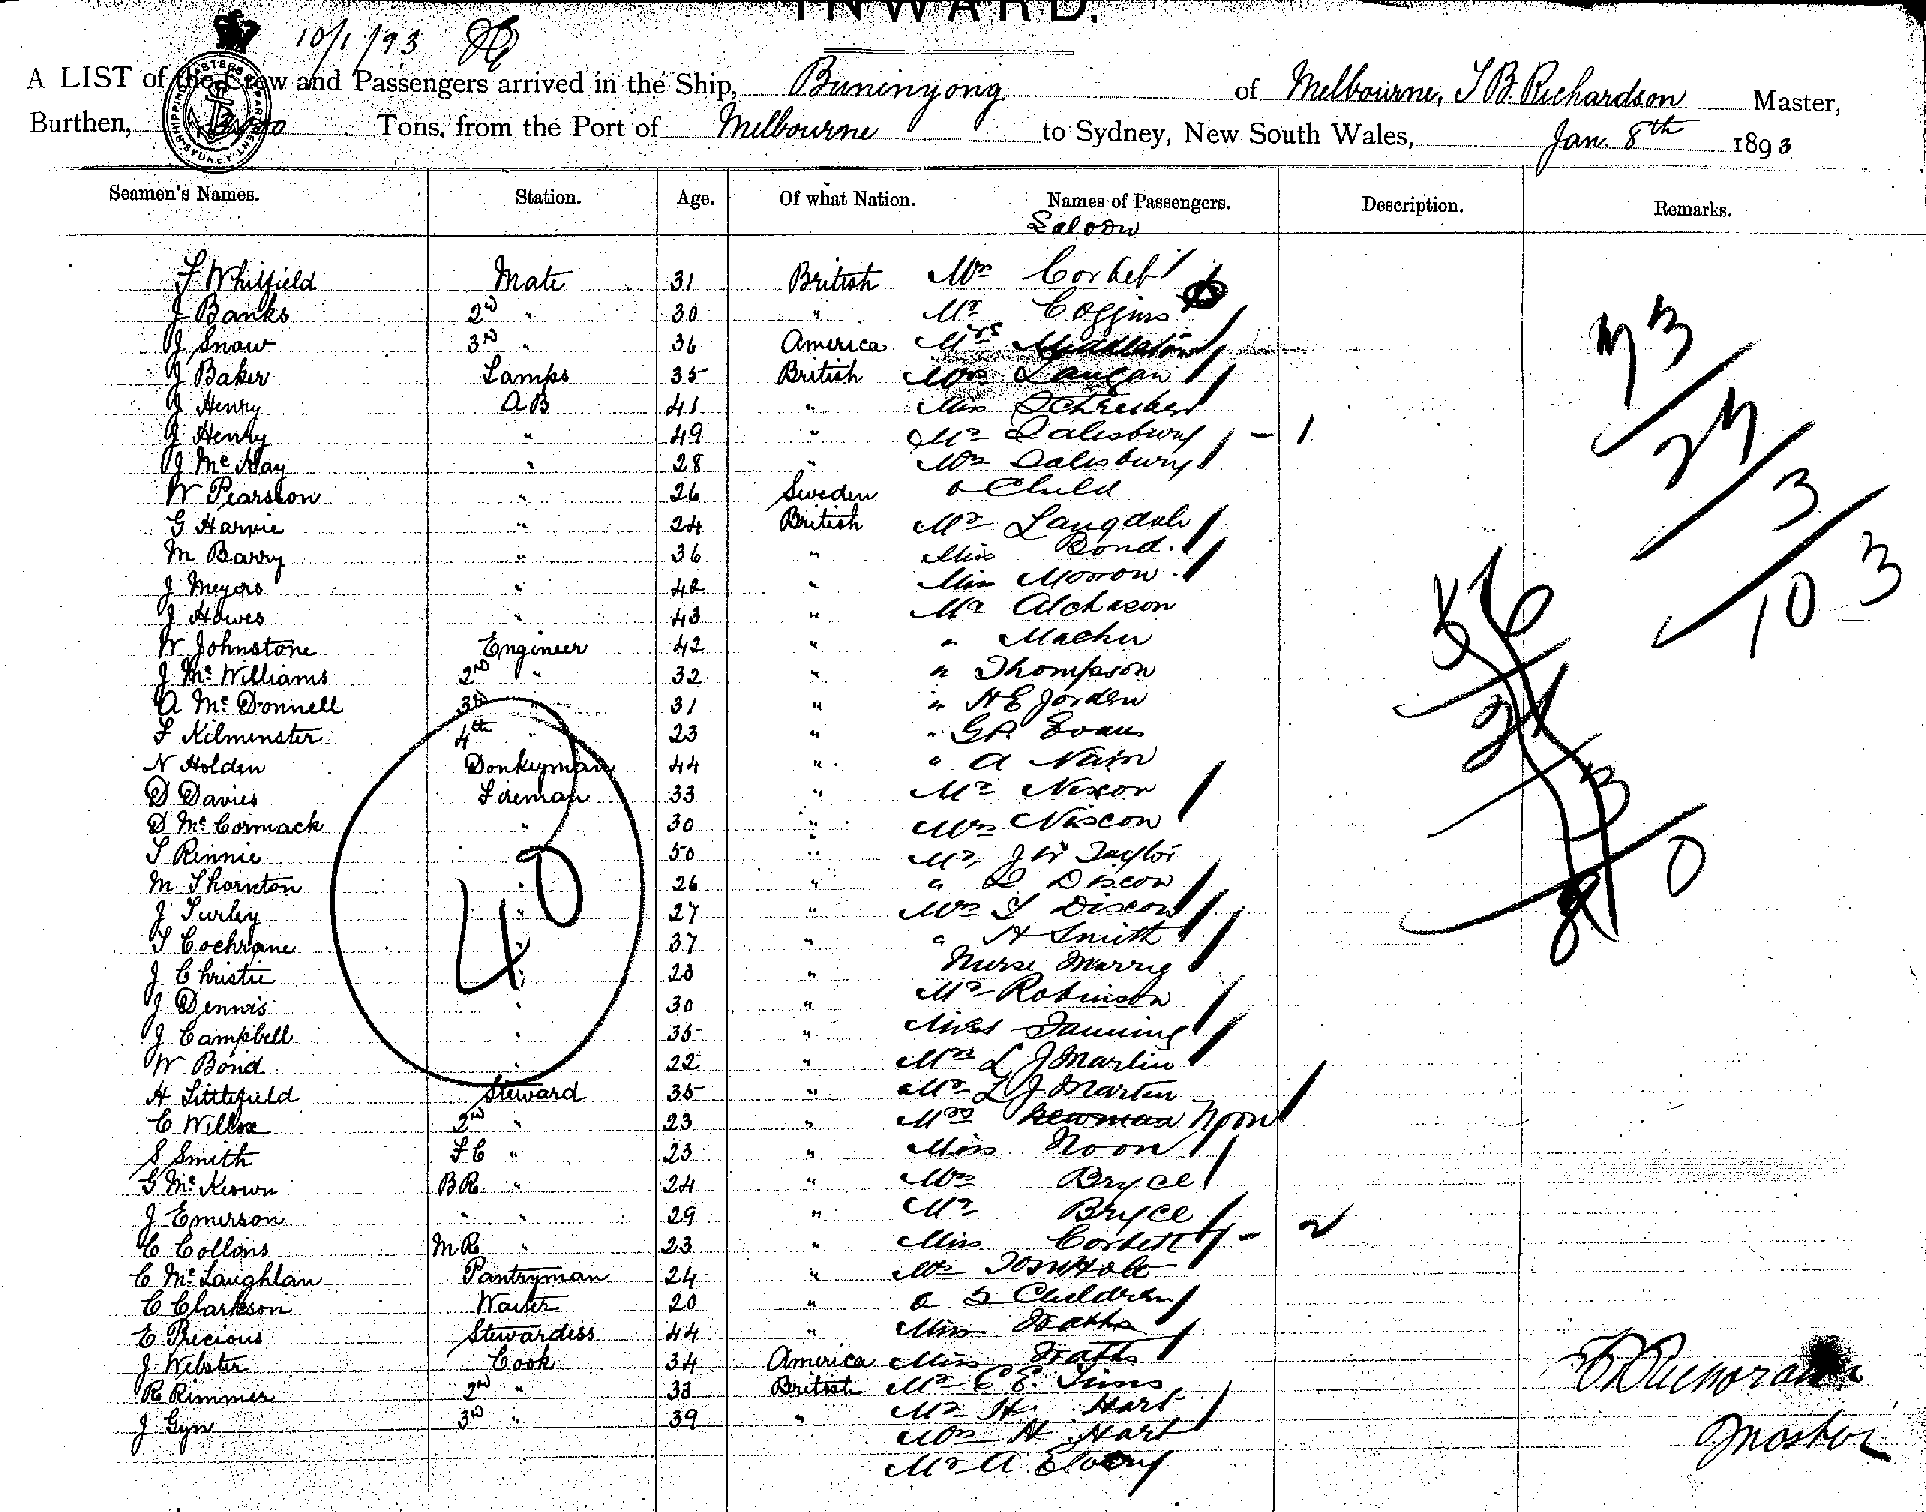 INWARD.
10/1/93
A LIST of the Crew and Passengers arrived in the Ship, Buninyong of Melbourne, T B Richardson Master,
Burthen, Tons, from the Port of Melbourne to Sydney, New South Wales, Jan. 8th 1893
Seamen's Names. Station. Age. Of what Nation. Names of Passengers. Description. Remarks.
Saloon
F Whitfield Mate 31 British Mrs Corbet
J Banks 2nd " 30 " Mr Coggins
J Snow 3rd " 36 America Mrs Middleton
J Baker Lamps 35 British Mrs Langan
J Henry A B 41 " Miss
J Henry " 49 " Mr Salisbury - 1
J McKay " 28 " Mrs Salisbury
W Pearsson " 26 Sweden a Child
G Harvie " 24 British Mr Langdale
M Barry " 36 " Miss Bond
J Meyers " 42 " Miss Moroon
J Howes " 43 " Mr Atcheson
W Johnstone Engineer 42 " " Macher
J McWilliams 2nd " 32 " " Thompson
A McDonnell 3rd " 31 " " H E Jorden
F Kilminster 4th " 23 " " Evans
N Holden Donkeyman 44 " " A Nairn
D Davies Fireman 33 " Mr Nixon
D McCormack " 30 " Mrs Nixcon
T Rennie " 50 " Mr J W Taylor
M Thornton " 26 " " Discon
J Turley " 27 " Mrs T Discon
T Cochrane " 37 " " H Smith
J Christie " 23 " Nurse Murray
J Dennis " 30 " Mr Robinson
J Campbell " 35 " Miss Fanning
W Bond " 22 " Mrs L J Martin
H Littlefield Steward 35 " Mr L J Martin
C Willox 2nd " 23 " Mrs Newman Noon
S Smith F C " 23 " Miss Noon
G McKeown B R " 24 " Mrs Bryce
J Emerson " " 29 " Mr Bryce
C Collons M R " 23 " Miss Corbett - 2
C McLaughlan Pantryman 24 " Mrs
C Clarkson Waiter 20 " a 2 Children
E Precious Stewardess 44 " Miss
J Webster Cook 34 America Miss
R Rimmer 2nd " 33 British Mr C E
J Gyn 3rd " 39 " Mr H. Hart
Mrs H Hart
Mr A
40
73
27
3
103
56
21
3
80
T B Richardson
Master